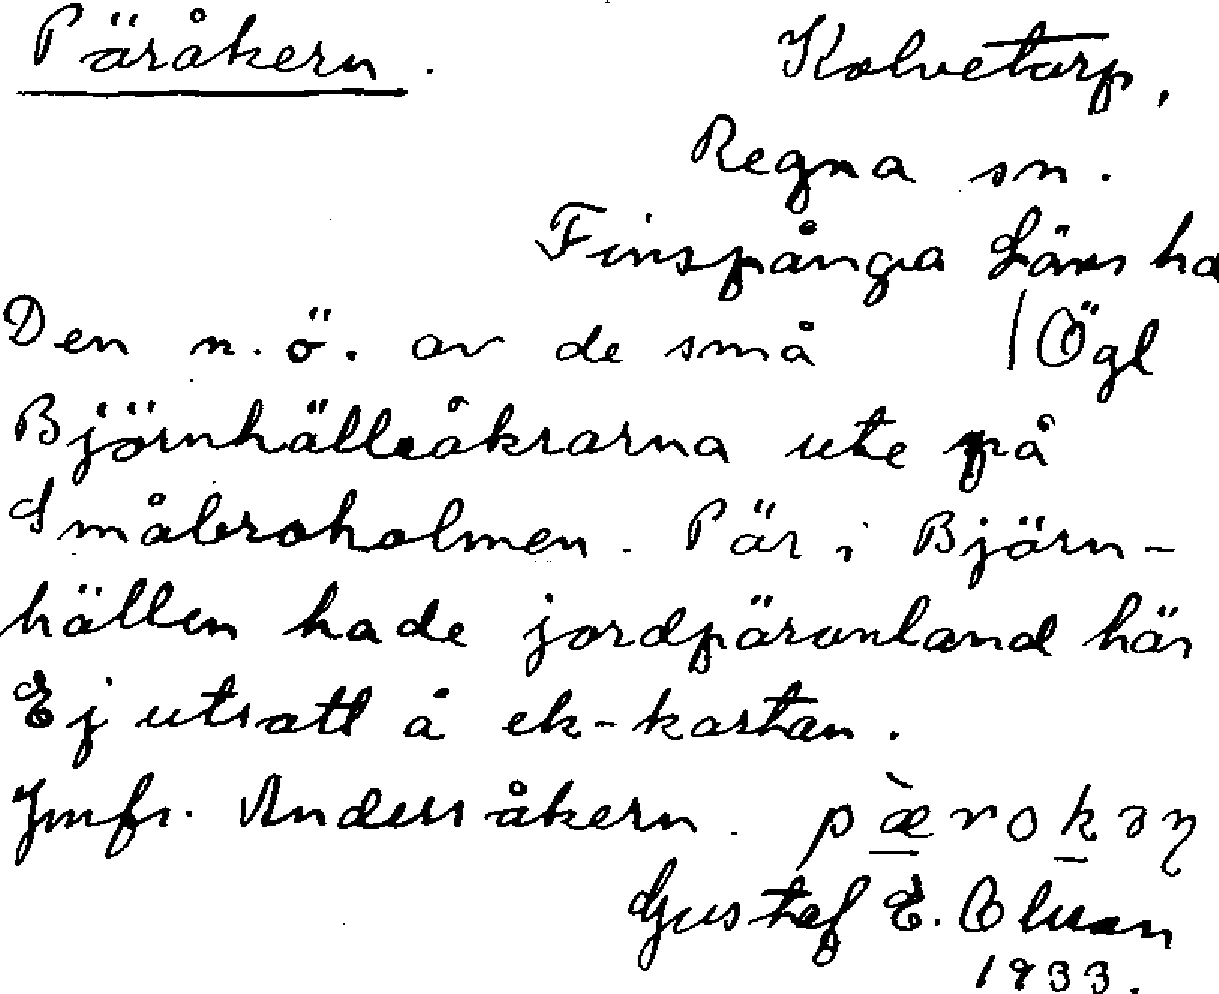 Päråkern. Kolvetorp,
Regna sn.
Finspånga Läns hd
Den n.ö. av de små /Ögl
Björnhälleåkrarna ute på
Småbroholmen. Pär i Björn-
hällen hade jordpäronland här
Ej utsatt å ek-kartan.
Jmfr. Andersåkern. pæ̀rokəɳ
Gustaf E. Olsson
1933.